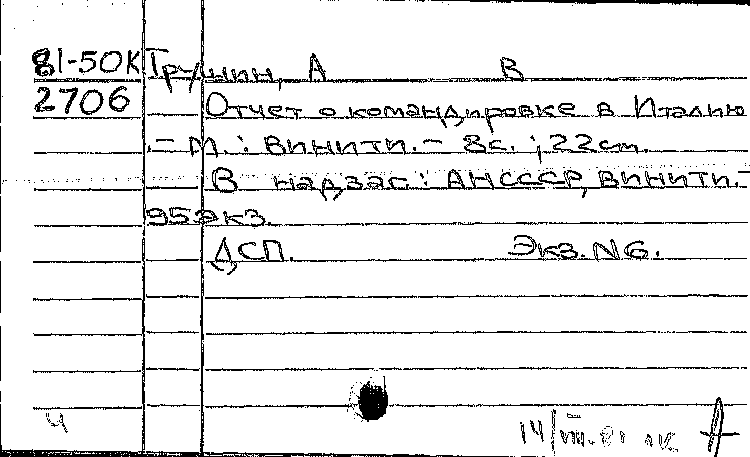 81-50К Грушин, А В
2706 Отчет о командировке в Италию
.- М.: ВИНИТИ.- 8с.; 22см.
В надзаг: АНСССР, ВИНИТИ.-
95экз.
ДСП. Экз. N6.
Ч 14/VIII-81